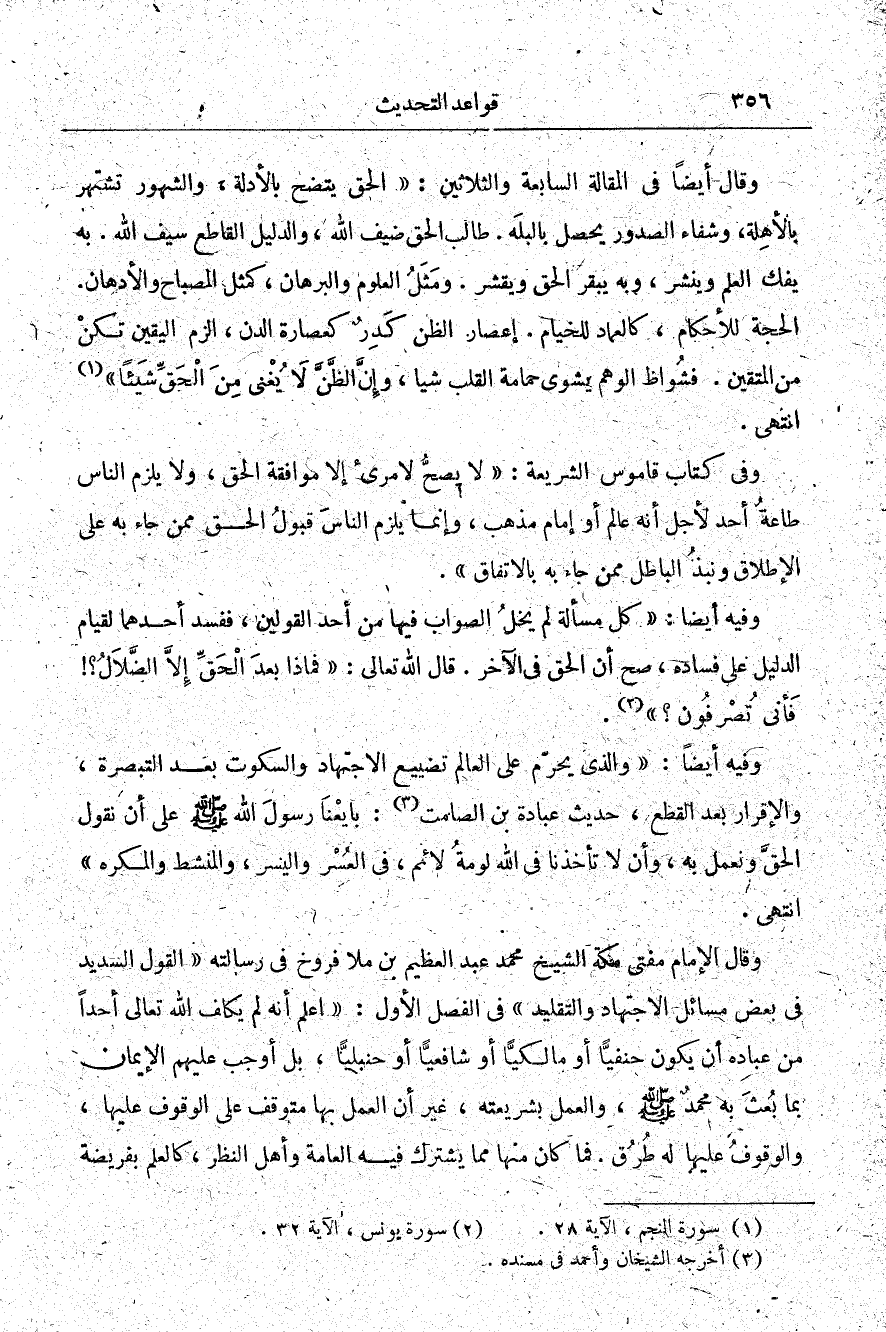 ٣٥٦ قواعد التحديث
وقال أيضاً فى المقالة السابعة والثلاثين : « الحق يتضح بالأدلة ، والشهور تشتهر
بالأهلة، وشفاء الصدور يحصل بالبلَه . طالب الحق ضيف الله ، والدليل القاطع سيف الله . به
يفك العلم وينشر ، وبه يبقر الحق ويقشر . ومَثَلُ العلوم والبرهان ، كمثل المصباح والأدهان.
الحجة للأحكام ، كالعماد للخيام . إعصار الظن كَدِرٌ كعصارة الدن ، الزم اليقين تكنْ
من المتقين . فشُواظ الوهم يشوى حمامة القلب شيا ، وإِنَّ الظَّنَّ لَا يُغْنى مِنَ الْحَقِّ شَيْئًا » (١)
انتهى .
وفى كتاب قاموس الشريعة : « لا يصحُّ لامرئ إلا موافقة الحق ، ولا يلزم الناس
طاعةُ أحد لأجل أنه عالم أو إمام مذهب ، وإنما يلزم الناسَ قبولُ الحق ممن جاء به على
الإطلاق ونبذُ الباطل ممن جاء به بالاتفاق » .
وفيه أيضا : « كل مسألة لم يخلُ الصواب فيها من أحد القولين ، ففسد أحدهما لقيام
الدليل على فساده ، صح أن الحق فى الآخر . قال الله تعالى : « فماذا بعدَ الْحَقِّ إِلاَّ الضَّلَالُ؟!
فَأَنى تُصْرفُون ؟ » (٢) .
وفيه أيضاً : « والذى يحرّم على العالم تضييع الاجتهاد والسكوت بعد التبصرة ،
والإقرار بعد القطع ، حديث عبادة بن الصامت (٣) : بايعْنَا رسولَ الله ﷺ على أن نقول
الحقَّ ونعمل به ، وأن لا تأخذنا فى الله لومةُ لائم ، فى العُسْر واليسر ، والمنشط والمكره »
انتهى .
وقال الإمام مفتى مكة الشيخ محمد عبد العظيم بن ملا فروخ فى رسالته « القول السديد
فى بعض مسائل الاجتهاد والتقليد » فى الفصل الأول : « اعلم أنه لم يكلف الله تعالى أحداً
من عباده أن يكون حنفيًّا أو مالكيًّا أو شافعيًّا أو حنبليًّا ، بل أوجب عليهم الإيمان
بما بُعثَ به محمدٌ ﷺ ، والعمل بشريعته ، غير أن العمل بها متوقف على الوقوف عليها ،
والوقوفُ عليها له طُرُق . فما كان منها مما يشترك فيه العامة وأهل النظر ، كالعلم بفريضة
(١) سورة النجم ، الآية ٢٨ . (٢) سورة يونس ، الآية ٣٢ .
(٣) أخرجه الشيخان وأحمد فى مسنده .